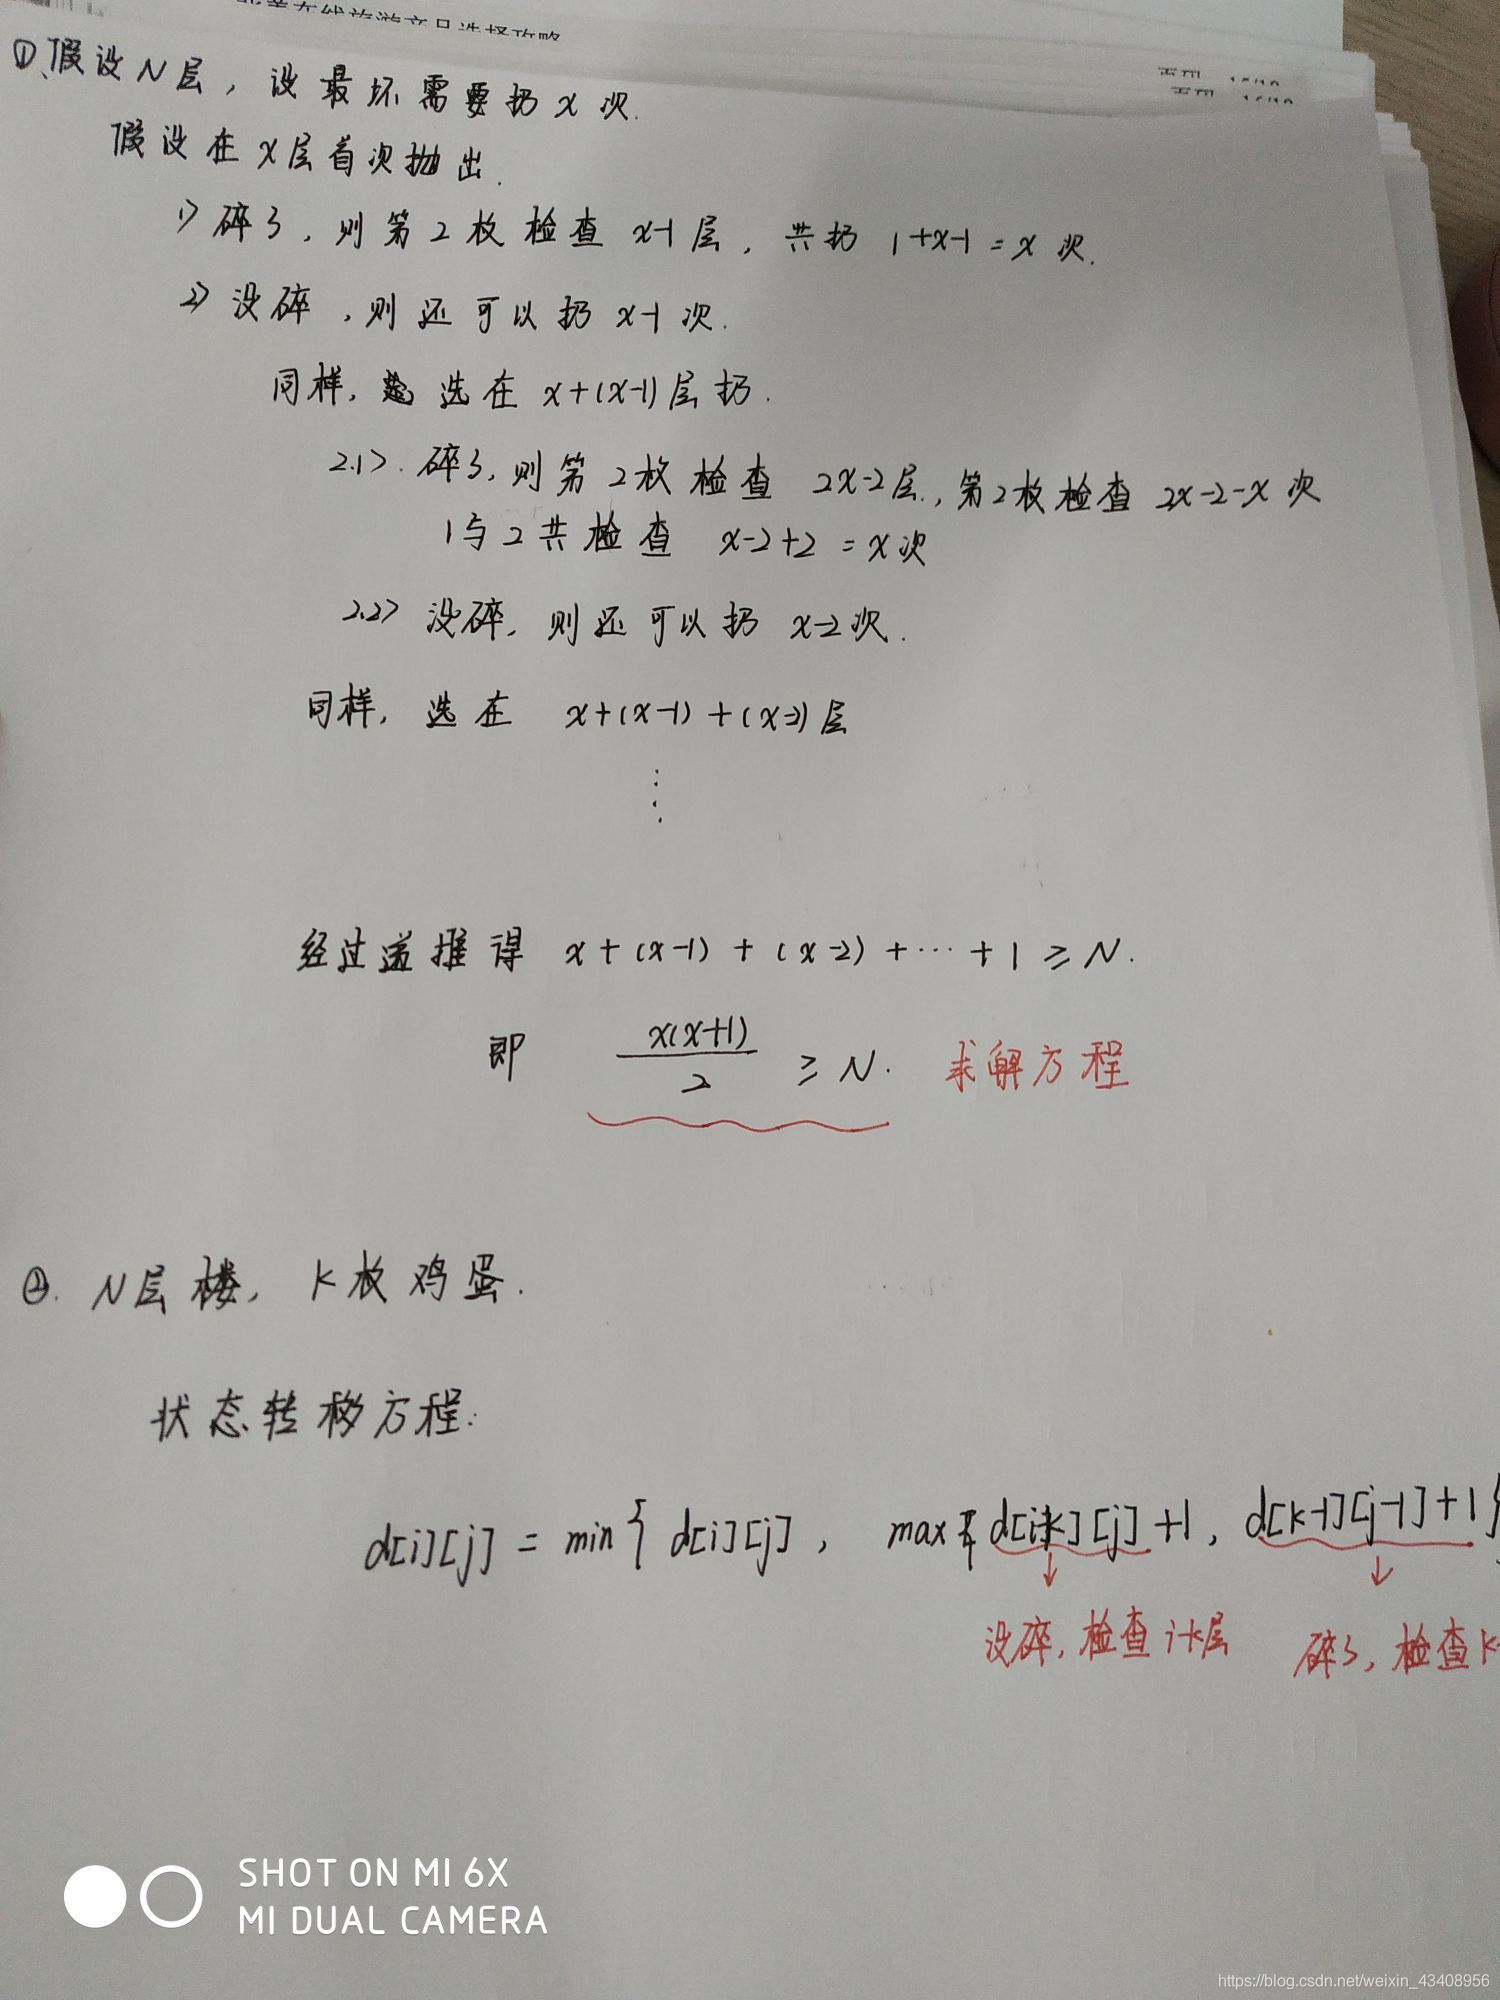 ①、假设N层，设最坏需要扔x次.
假设在x层首次抛出.
1> 碎了，则第2枚检查 x-1层，共扔 1+x-1=x 次.
2> 没碎，则还可以扔 x-1次.
同样，选在 x+(x-1)层扔.
2.1>. 碎了，则第2枚检查 2x-2层，第2枚检查 2x-2-x 次
1与2共检查 x-2+2 = x次
2.2> 没碎，则还可以扔 x-2次.
同样，选在 x+(x-1)+(x-2)层
⋮
经过递推得 x+(x-1)+(x-2)+⋯+1≥N.
即 x(x+1)/2 ≥N. 求解方程
②. N层楼，K枚鸡蛋.
状态转移方程:
d[i][j] = min{ d[i][j], max{ d[i-k][j]+1, d[k-1][j-1]+1}
↓ ↓
没碎，检查i-k层 碎了，检查k-
SHOT ON MI 6X
MI DUAL CAMERA
https://blog.csdn.net/weixin_43408956